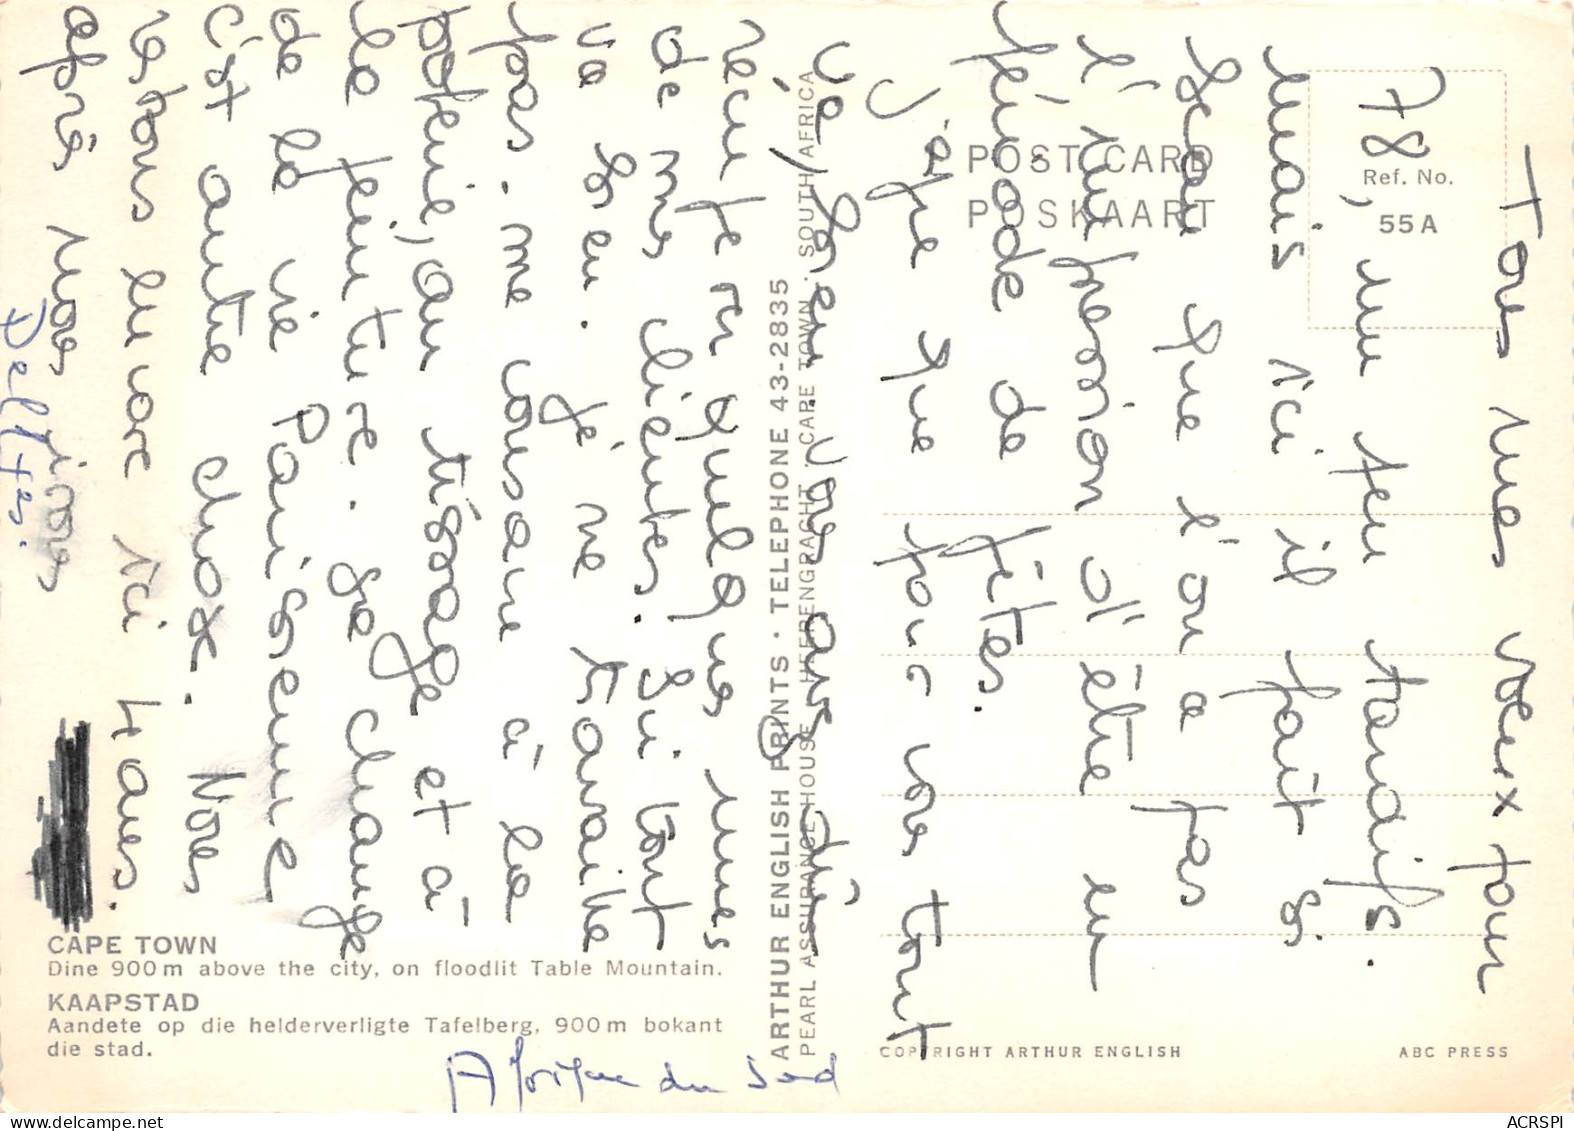 Tous mes voeux pour
78, un peu tardifs.
Mais ici il fait si
beau que l'on a pas
l'impression d'être en
période de fêtes.
J'espère que pour vous tout
va bien. Nous avons dîné
récu
de mes clientes. Ici tout
va bien. Je ne travaille
pas. me consacre à la
poterie, au tissage et à
la peinture. ça change
de la vie Parisienne
c'est autre chose. Nous
restons encore ici 4 ans.
après nous irons
Delftes.
POST CARD
POSKAART
Ref. No.
55A
ARTHUR ENGLISH PRINTS · TELEPHONE 43-2835
PEARL ASSURANCE HOUSE · HEERENGRACHT · CAPE TOWN · SOUTH AFRICA
CAPE TOWN
Dine 900 m above the city, on floodlit Table Mountain.
KAAPSTAD
Aandete op die helderverligte Tafelberg, 900 m bokant
die stad.
COPYRIGHT ARTHUR ENGLISH
ABC PRESS
Afrique du Sud
www.delcampe.net
ACRSPI